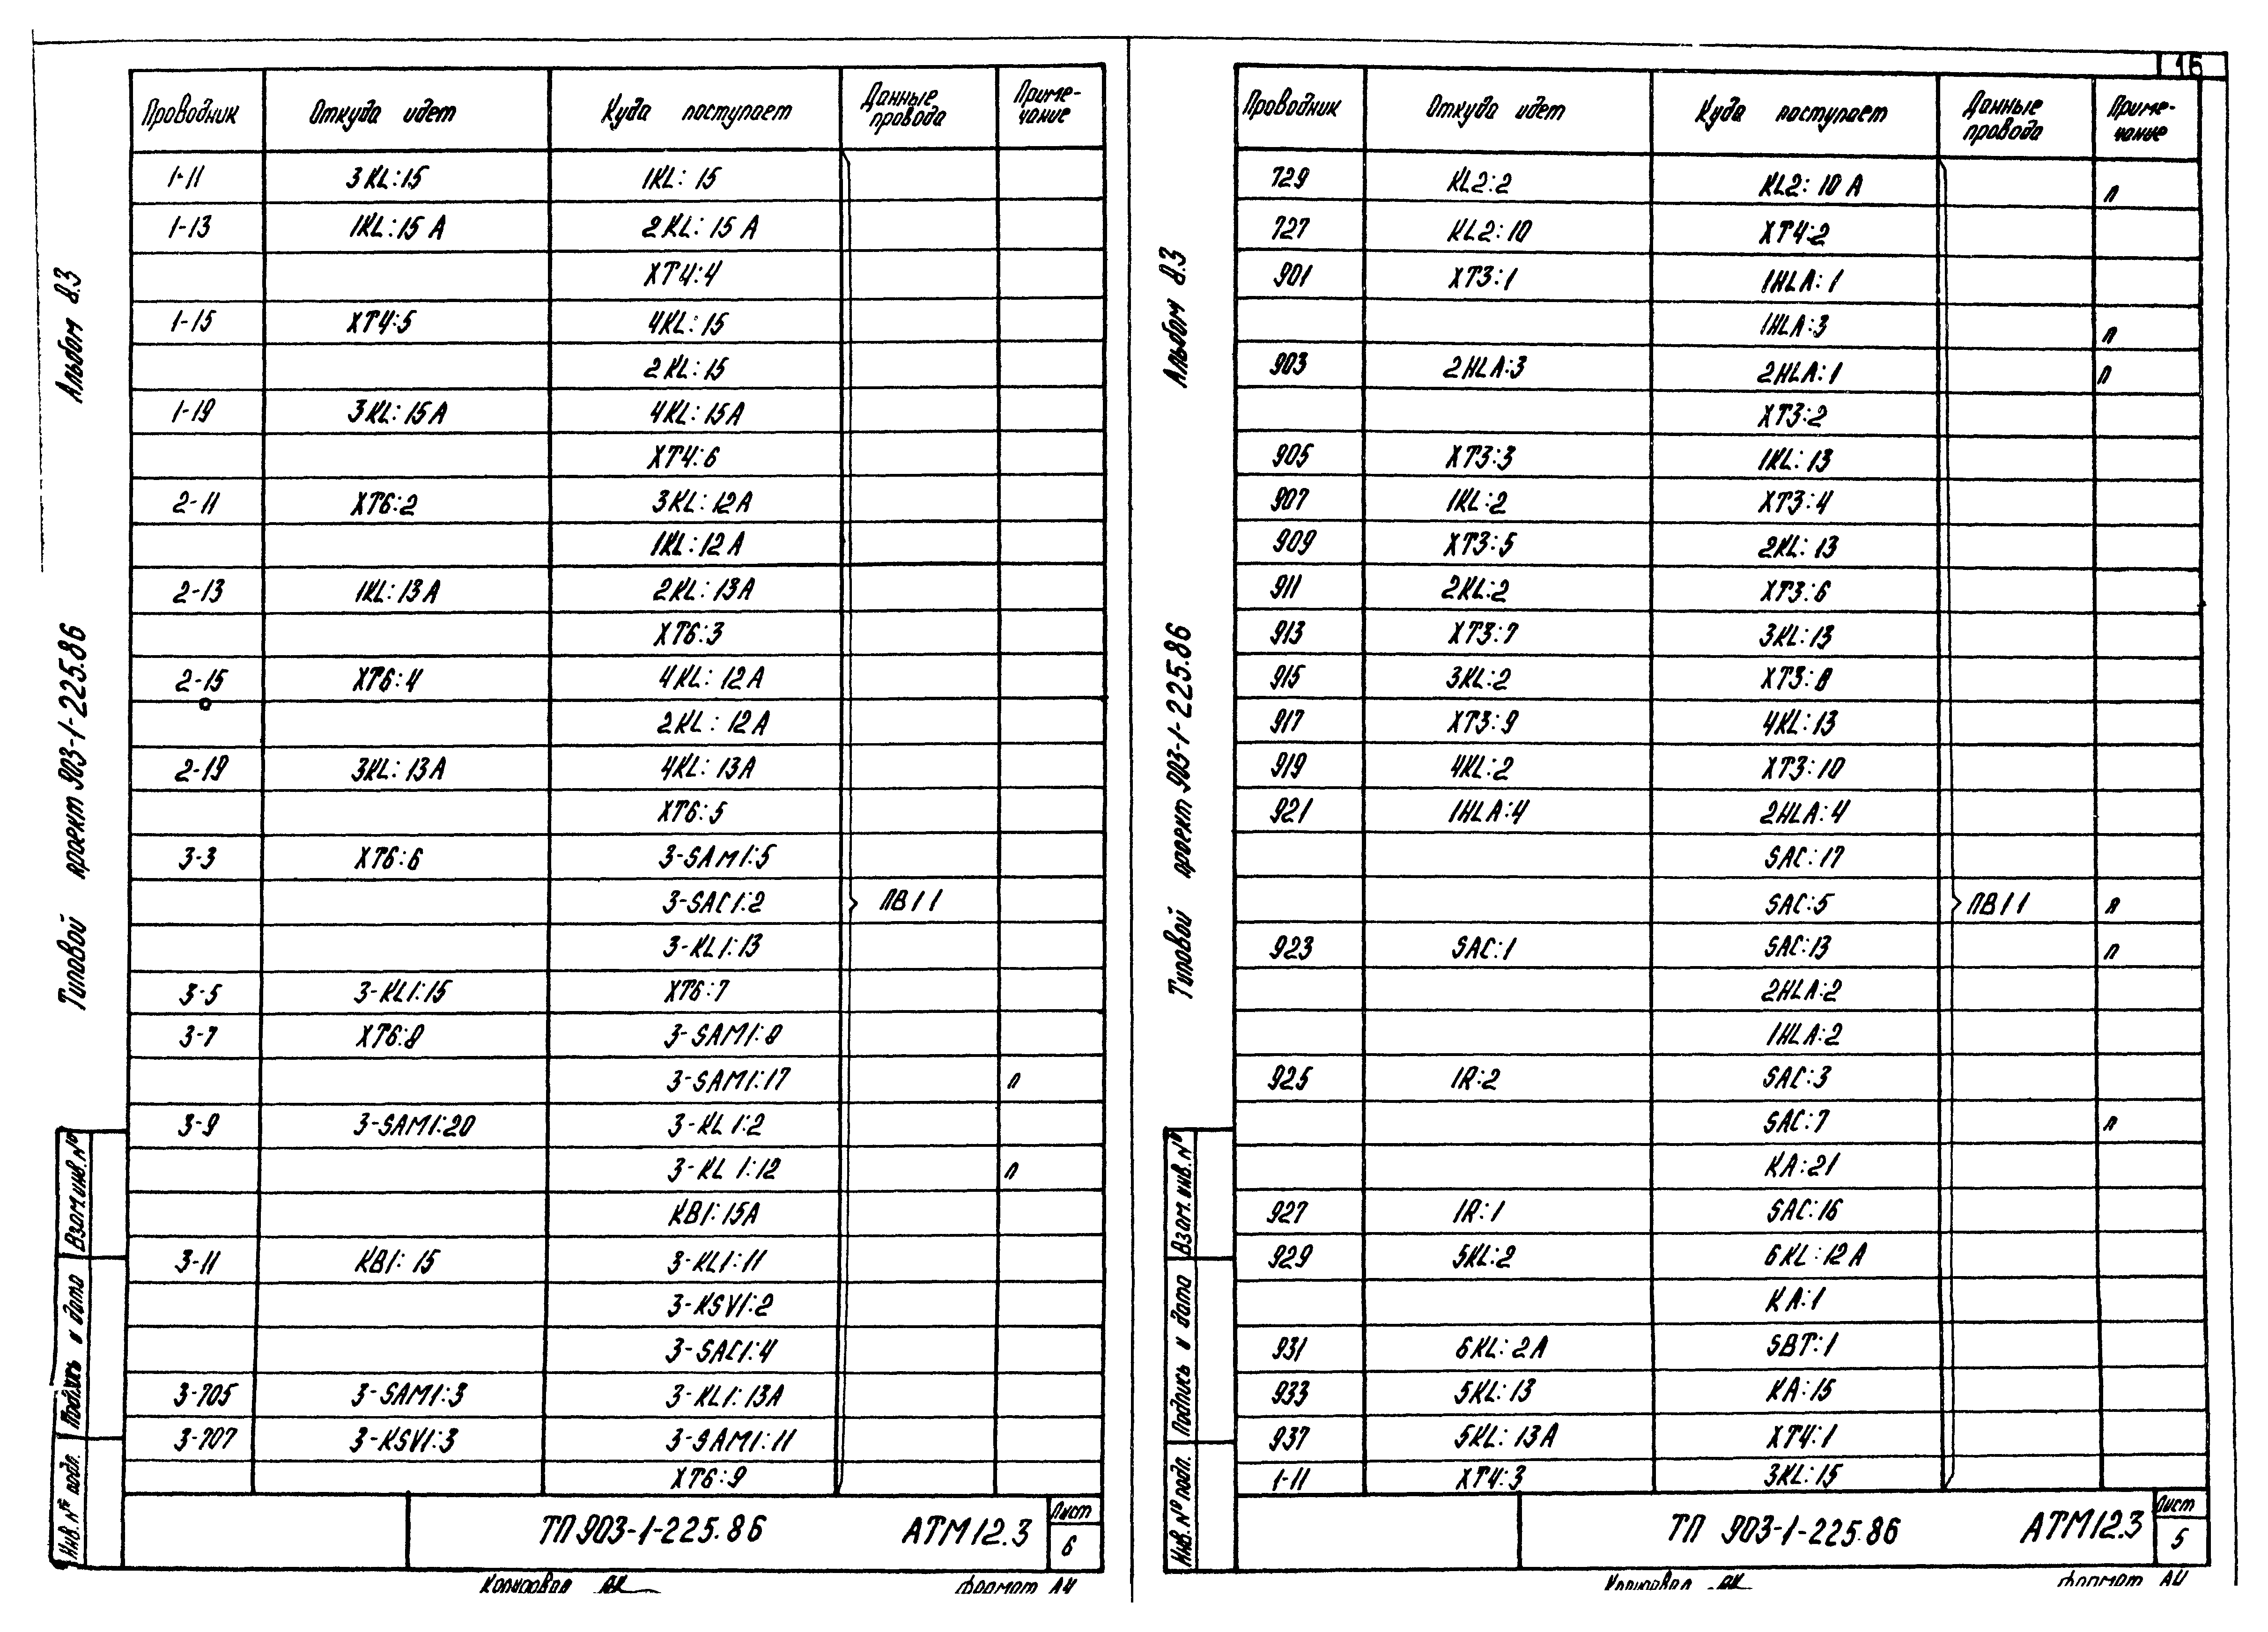 Альбом 8.3
Типовой проект 903-1-225.86
Проводник Откуда идет Куда поступает Данные провода Приме-чание
1-11 3KL:15 1KL:15
1-13 1KL:15A 2KL:15A
XT4:4
1-15 XT4:5 4KL:15
2KL:15
1-19 3KL:15A 4KL:15A
XT4:6
2-11 XT6:2 3KL:12A
1KL:12A
2-13 1KL:13A 2KL:13A
XT6:3
2-15 XT6:4 4KL:12A
2KL:12A
2-19 3KL:13A 4KL:13A
XT6:5
3-3 XT6:6 3-SAM1:5
3-SAC1:2 ПВ1 1
3-KL1:13
3-5 3-KL1:15 XT6:7
3-7 XT6:8 3-SAM1:8
3-SAM1:17 п
3-9 3-SAM1:20 3-KL1:2
3-KL1:12 п
KB1:15A
3-11 KB1:15 3-KL1:11
3-KSV1:2
3-SAC1:4
3-705 3-SAM1:3 3-KL1:13A
3-707 3-KSV1:3 3-SAM1:11
XT6:9
Взам.инв.№
Подпись и дата
Инв.№ подл.
ТП 903-1-225.86 АТМ12.3 Лист 6
Копировал формат А4
16
Альбом 8.3
Типовой проект 903-1-225.86
Проводник Откуда идет Куда поступает Данные провода Приме-чание
729 KL2:2 KL2:10A п
727 KL2:10 XT4:2
901 XT3:1 1HLA:1
1HLA:3 п
903 2HLA:3 2HLA:1 п
XT3:2
905 XT3:3 1KL:13
907 1KL:2 XT3:4
909 XT3:5 2KL:13
911 2KL:2 XT3:6
913 XT3:7 3KL:13
915 3KL:2 XT3:8
917 XT3:9 4KL:13
919 4KL:2 XT3:10
921 1HLA:4 2HLA:4
SAC:17
SAC:5 ПВ1 1 п
923 SAC:1 SAC:13 п
2HLA:2
1HLA:2
925 1R:2 SAC:3
SAC:7 п
KA:21
927 1R:1 SAC:16
929 5KL:2 6KL:12A
KA:1
931 6KL:2A SBT:1
933 5KL:13 KA:15
937 5KL:13A XT4:1
1-11 XT4:3 3KL:15
Взам.инв.№
Подпись и дата
Инв.№ подл.
ТП 903-1-225.86 АТМ12.3 Лист 5
Копировал формат А4